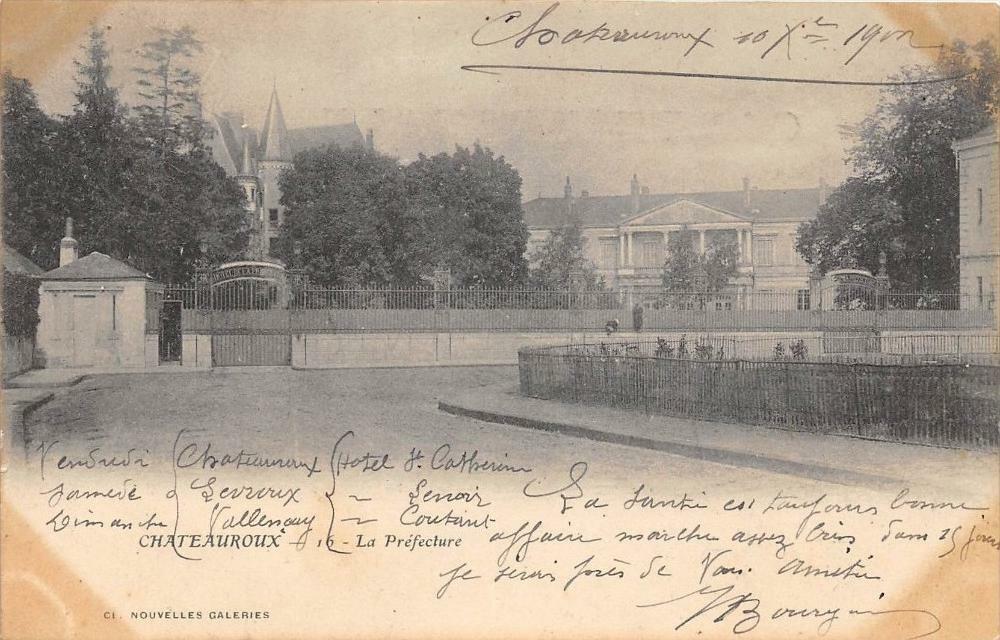 Chateauroux 10 Xre 1902
HOTEL DE LA PREF
Vendredi { Chateauroux { Hotel St. Catherine
Samedi à { Levroux { — Lenoir
Dimanche { Vallençay { — Coutant
CHATEAUROUX — 16 - La Préfecture
La Santé est toujours bonne
affaire marche assez bien dans 15 jours
Je serai près de Vous. Amitié
Bourgin
Cl. NOUVELLES GALERIES